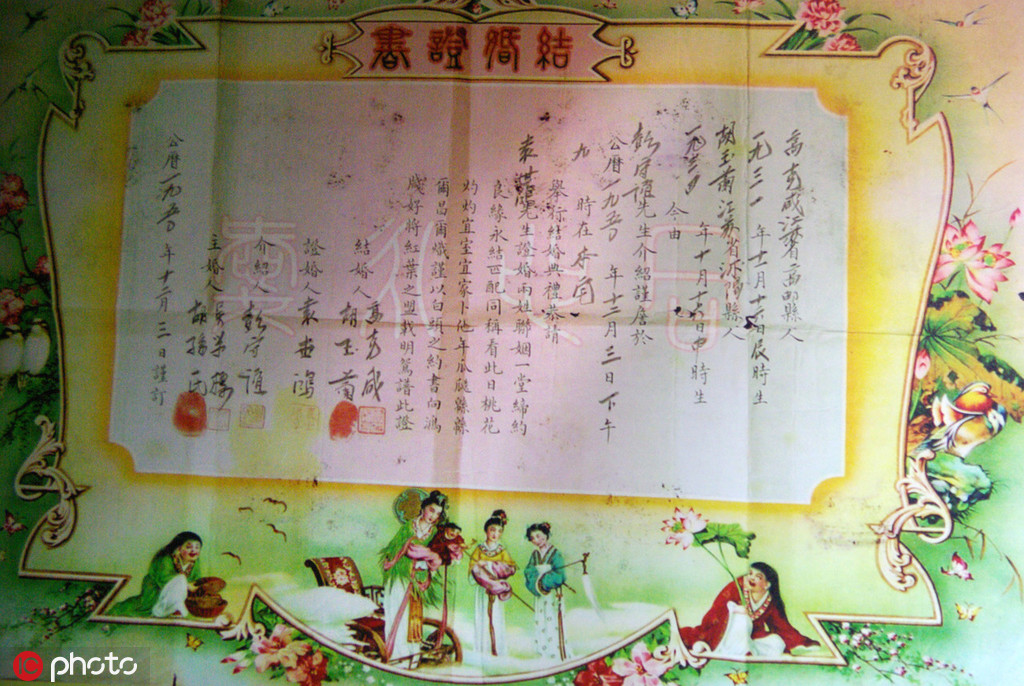 結婚證書
江蘇省高郵縣人
一九三一年十二月十二日辰時生
胡玉蘭江蘇省沭陽縣人
年十月十六日申時生
今由
先生介紹謹詹於
公曆一九五〇年十二月三日下午
九時在本宅
舉行結婚典禮恭請
袁世鴻先生證婚兩姓聯姻一堂締約
良緣永結匹配同稱看此日桃花
灼灼宜室宜家卜他年瓜瓞緜緜
爾昌爾熾謹以白頭之約書向鴻
牋好將紅葉之盟載明鴛譜此證
結婚人
胡玉蘭
證婚人袁世鴻
介紹人
主婚人
公曆一九五〇年十二月三日謹訂
IC photo